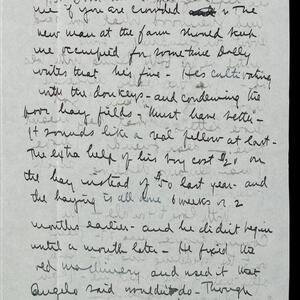 me if you are crowded. The
new man at the farm should keep
me occupied for sometime Dolly
writes that his fine - He's cultivating
with the donkeys - and condemning the
poor hay fields - "Must have better" -
It sounds like a real fellow at last -
The extra help of his boy cost $20 on
the hay instead of $50 last year - and
the haying is all done 6 weeks or 2
months earlier - and he didnt begin
until a month later - He fixed the
old machinery and used it that
Angelo said wouldn't do - Though